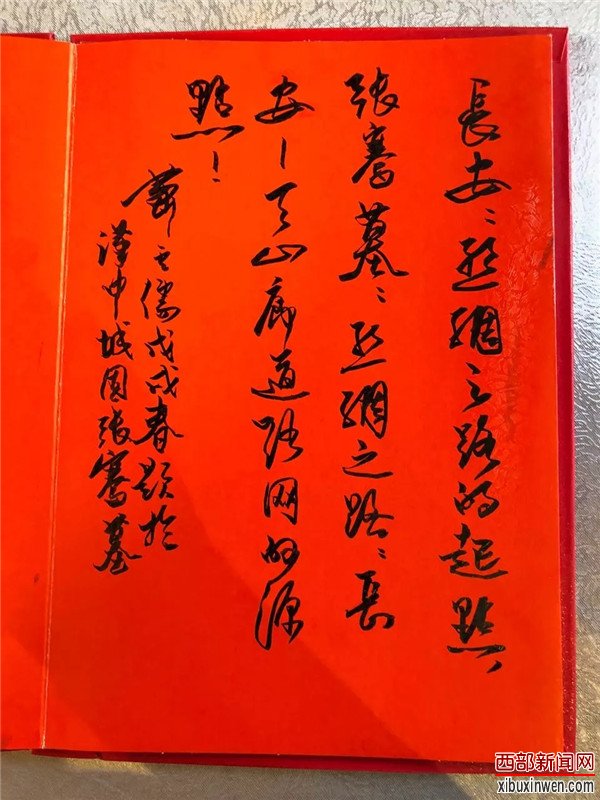 長安:丝綢之路的起點,
張騫墓:丝綢之路:長
安—天山廊道路网的源
點!
萧云儒戊戌春题於
漢中城固張騫墓
西部新闻网
xibuxinwen.com